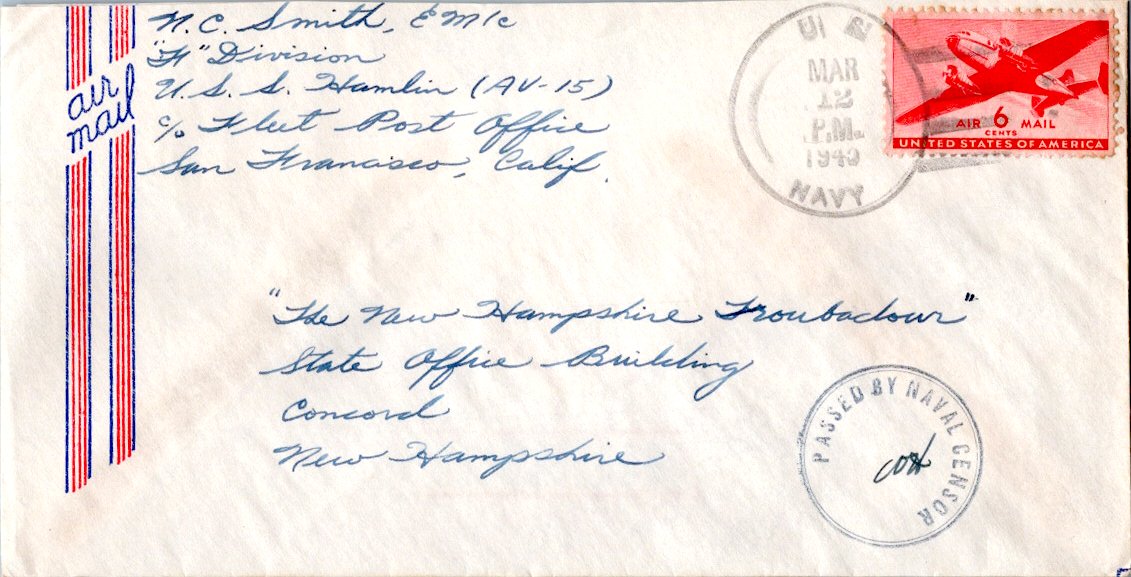 N.C. Smith, EM1c
"F" Division
U.S.S. Hamlin (AV-15)
c/o Fleet Post Office
San Francisco, Calif.
air
mail
U S
MAR
12
P.M.
1945
NAVY
AIR 6 MAIL
CENTS
UNITED STATES OF AMERICA
"The New Hampshire Troubadour"
State Office Building
Concord
New Hampshire
PASSED BY NAVAL CENSOR